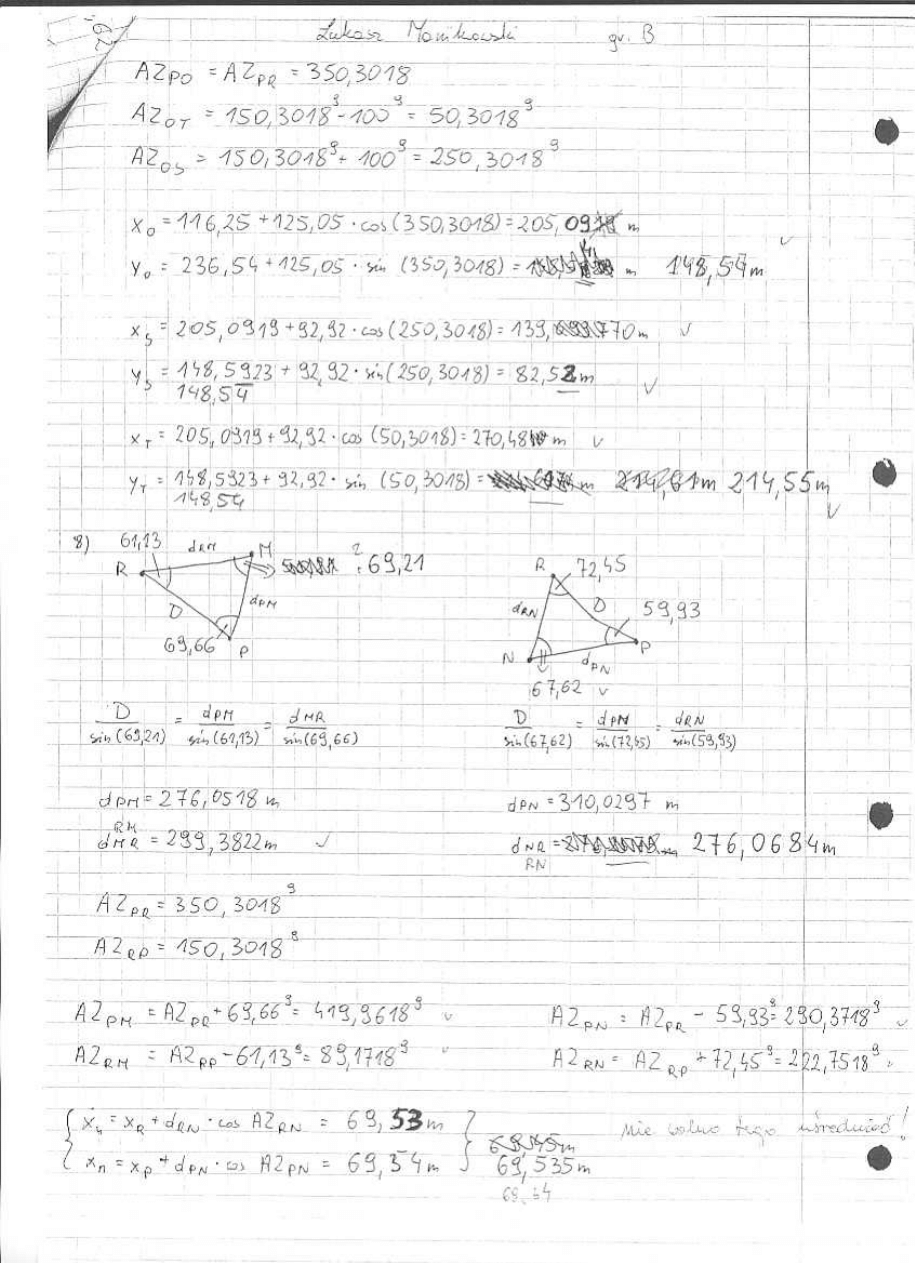 Łukasz Monikowski gr. B
AZPO = AZPR = 350,3018
AZOT = 150,3018g - 100g = 50,3018g
AZOS = 150,3018g + 100g = 250,3018g
xo = 116,25 + 125,05 · cos(350,3018) = 205,09 m
Yo = 236,54 + 125,05 · sin (350,3018) = m 148,54m
xs = 205,0919 + 92,92 · cos(250,3018) = 139,770m
Ys = 148,5923 + 92,92 · sin(250,3018) = 82,52m
148,54
xT = 205,0919 + 92,92 · cos (50,3018) = 270,48 m
YT = 148,5923 + 92,92 · sin (50,3018) = m 214,61m 214,55m
148,54
8) 61,13 dRM M
R 69,21
D dPM
69,66 P
R 72,45
dRN D 59,93
N dPN P
67,62
D/sin(69,21) = dPM/sin(61,13) = dMR/sin(69,66)
D/sin(67,62) = dPM/sin(72,45) = dRN/sin(59,93)
dPM = 276,0518 m dPN = 310,0297 m
RM
dMR = 299,3822m dNR = 276,0684m
RN
AZPR = 350,3018g
AZRP = 150,3018g
AZPM = AZPR + 69,66g = 419,9618g AZPN = AZPR - 59,93g = 290,3718g
AZRM = AZRP - 61,13g = 89,1718g AZRN = AZRP + 72,45g = 222,7518g
xn = xR + dRN · cos AZRN = 69,53m
nie wolno tego uśredniać!
xn = xP + dPN · cos AZPN = 69,54m 69,535m
69,54